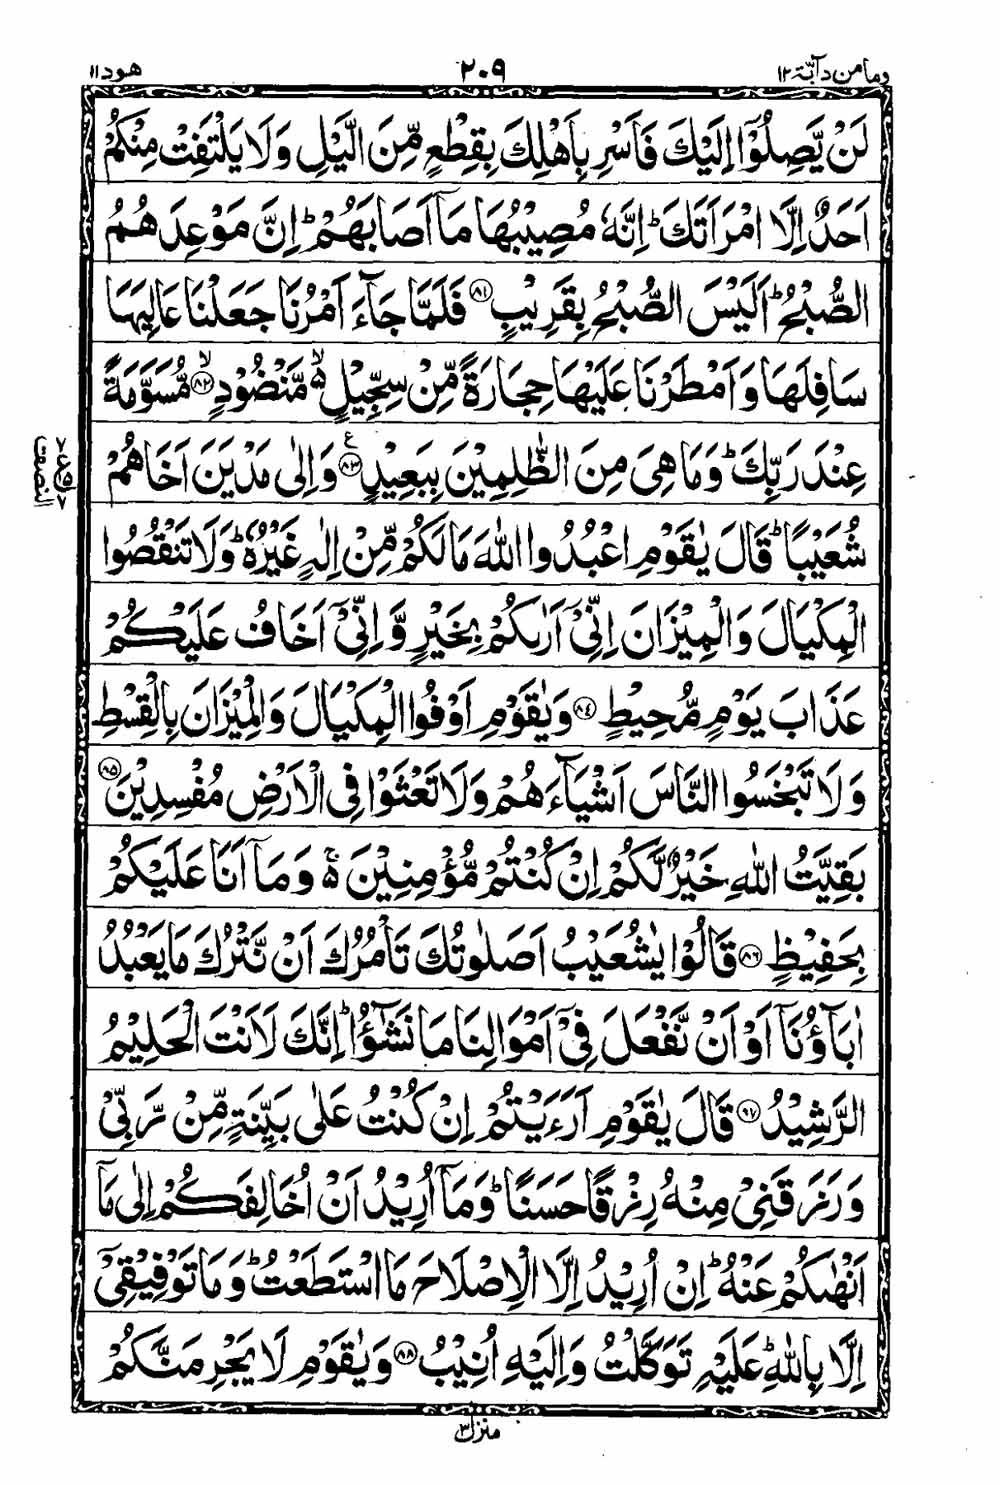 وما من دآبة ۱۲
۲۰۹
هود ۱۱
لَنْ يَّصِلُوْٓا اِلَيْكَ فَاَسْرِ بِاَهْلِكَ بِقِطْعٍ مِّنَ الَّيْلِ وَلَا يَلْتَفِتْ مِنْكُمْ
اَحَدٌ اِلَّا امْرَاَتَكَ ؕ اِنَّهٗ مُصِيْبُهَا مَآ اَصَابَهُمْ ؕ اِنَّ مَوْعِدَهُمُ
الصُّبْحُ ؕ اَلَيْسَ الصُّبْحُ بِقَرِيْبٍ ﴿۸۱﴾ فَلَمَّا جَآءَ اَمْرُنَا جَعَلْنَا عَالِيَهَا
سَافِلَهَا وَاَمْطَرْنَا عَلَيْهَا حِجَارَةً مِّنْ سِجِّيْلٍ ۙ۬ مَّنْضُوْدٍ ﴿۸۲﴾ ۙ مُّسَوَّمَةً
عِنْدَ رَبِّكَ ؕ وَمَا هِيَ مِنَ الظّٰلِمِيْنَ بِبَعِيْدٍ ﴿۸۳﴾ ع وَاِلٰى مَدْيَنَ اَخَاهُمْ
شُعَيْبًا ؕ قَالَ يٰقَوْمِ اعْبُدُوا اللّٰهَ مَا لَكُمْ مِّنْ اِلٰهٍ غَيْرُهٗ ؕ وَلَا تَنْقُصُوا
الْمِكْيَالَ وَالْمِيْزَانَ اِنِّيْٓ اَرٰىكُمْ بِخَيْرٍ وَّاِنِّيْٓ اَخَافُ عَلَيْكُمْ
عَذَابَ يَوْمٍ مُّحِيْطٍ ﴿۸۴﴾ وَيٰقَوْمِ اَوْفُوا الْمِكْيَالَ وَالْمِيْزَانَ بِالْقِسْطِ
وَلَا تَبْخَسُوا النَّاسَ اَشْيَآءَهُمْ وَلَا تَعْثَوْا فِى الْاَرْضِ مُفْسِدِيْنَ ﴿۸۵﴾
بَقِيَّتُ اللّٰهِ خَيْرٌ لَّكُمْ اِنْ كُنْتُمْ مُّؤْمِنِيْنَ ۚ۬ وَمَآ اَنَا عَلَيْكُمْ
بِحَفِيْظٍ ﴿۸۶﴾ قَالُوْا يٰشُعَيْبُ اَصَلٰوتُكَ تَاْمُرُكَ اَنْ نَّتْرُكَ مَا يَعْبُدُ
اٰبَآؤُنَآ اَوْ اَنْ نَّفْعَلَ فِيْٓ اَمْوَالِنَا مَا نَشٰٓؤُا ؕ اِنَّكَ لَاَنْتَ الْحَلِيْمُ
الرَّشِيْدُ ﴿۸۷﴾ قَالَ يٰقَوْمِ اَرَءَيْتُمْ اِنْ كُنْتُ عَلٰى بَيِّنَةٍ مِّنْ رَّبِّيْ
وَرَزَقَنِيْ مِنْهُ رِزْقًا حَسَنًا ؕ وَمَآ اُرِيْدُ اَنْ اُخَالِفَكُمْ اِلٰى مَآ
اَنْهٰىكُمْ عَنْهُ ؕ اِنْ اُرِيْدُ اِلَّا الْاِصْلَاحَ مَا اسْتَطَعْتُ ؕ وَمَا تَوْفِيْقِيْٓ
اِلَّا بِاللّٰهِ ؕ عَلَيْهِ تَوَكَّلْتُ وَاِلَيْهِ اُنِيْبُ ﴿۸۸﴾ وَيٰقَوْمِ لَا يَجْرِمَنَّكُمْ
منزل ۳